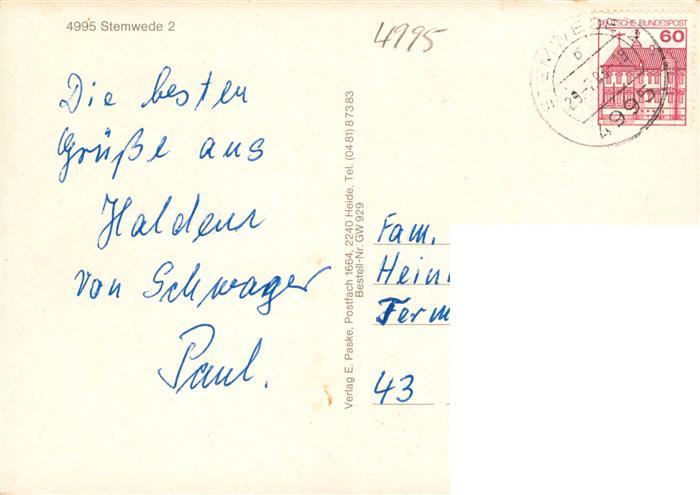 4995 Stemwede 2
4995
DEUTSCHE BUNDESPOST
60
STEMWEDE
b
4995
Die besten
Grüße aus
Haldem
von Schwager
Paul.
Verlag E. Paske, Postfach 1664, 2240 Heide, Tel. (04 81) 8 73 83
Bestell-Nr. GW 929
Fam.
Hein
Ferm
43